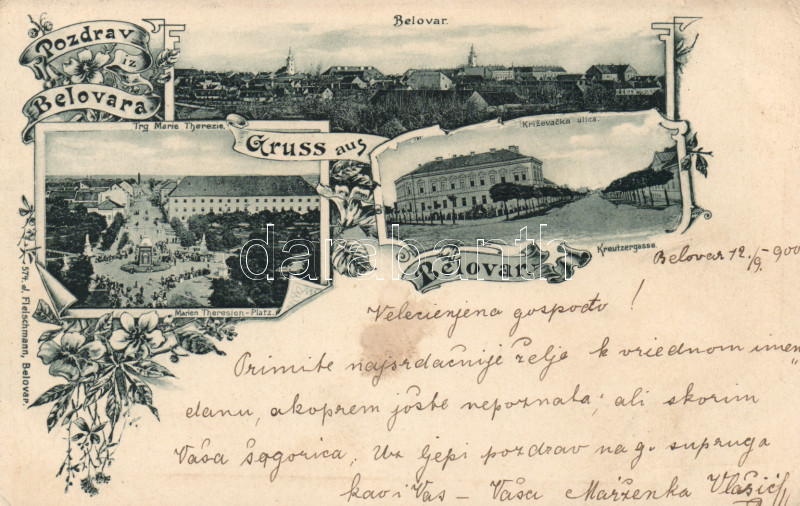 Pozdrav
iz
Belovara
Belovar.
Trg Marie Therezie.
Gruss aus
Križevačka ulica.
Kreutzergasse.
Belovar.
Marien Theresien-Platz.
574. J. Fleischmann, Belovar.
darabanth.com
Belovar 12./9. 900
Velecienjena gospođo!
Primite najsrdačnije želje k vriednom imen„
danu, akoprem jošte nepoznata, ali skorim
Vaša šogorica, Uz ljepi pozdrav na g. supruga
kao i Vas – Vaša Marženka Vlašić